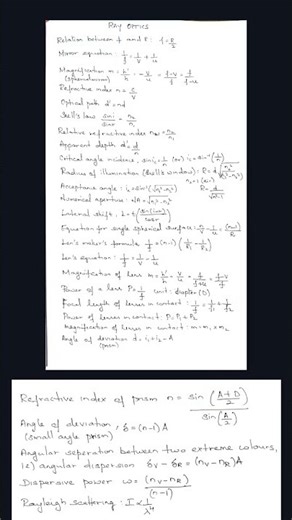 RAY OPTICS
Relation between f and R: f = R/2
Mirror equation: 1/f = 1/v + 1/u
Magnification m = h'/h = -v/u = f-v/f = f/f-u
Refractive index n = c/v
Optical path d' = nd
Snell's law sin i/sin r = n₂/n₁
Relative refractive index n₂₁ = n₂/n₁
Apparent depth d' = d/n
Critical angle incidence, sin ic = 1/n (or) ic = sin⁻¹(1/n)
Radius of illumination (Snell's window): R = d
Acceptance angle: ia = sin⁻¹(√n₁²-n₂²)
Numerical aperture: NA = √n₁²-n₂²
Lateral shift: L = t (sin(i-r)/cos r)
Equation for single spherical surface: n₂/v - n₁/u = (n₂-n₁)/R
Len's maker's formula 1/f = (n-1) (1/R₁ - 1/R₂)
Len's equation: 1/f = 1/v - 1/u
Magnification of lens m = h'/h = v/u = f/f+u = f-v/f
Power of a lens P = 1/f unit: diopter (D)
Focal length of lenses in contact: 1/f = 1/f₁ + 1/f₂
Power of lenses in contact: P = P₁ + P₂
Magnification of lenses in contact: m = m₁ × m₂
Angle of deviation d = i₁ + i₂ - A
(prism)
Refractive index of prism n = sin (A+D/2) / sin (A/2)
Angle of deviation, δ = (n-1) A
(small angle prism)
Angular seperation between two extreme colours,
i.e) angular dispersion δv - δR = (nv - nR) A
Dispersive power ω = (nv - nR)/(n-1)
Rayleigh scattering: I ∝ 1/λ⁴